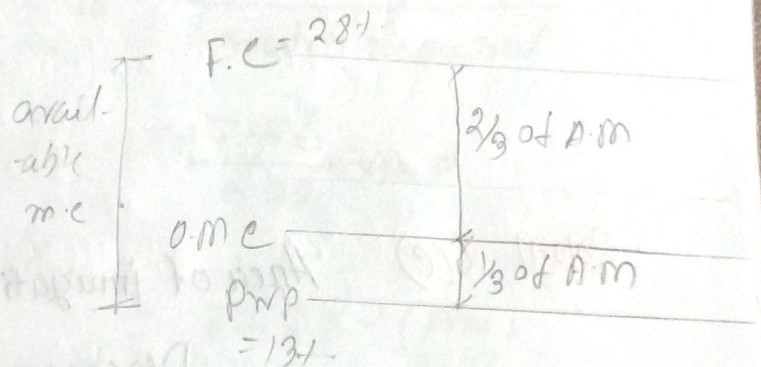 F.C = 28%.
avail-
-able
m.c
2/3 of A.M
O.M C
1/3 of A.M
PWP
= 13%.